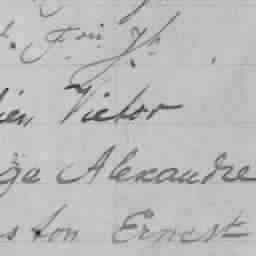 ien Victor
ge Alexandre
ston Ernest